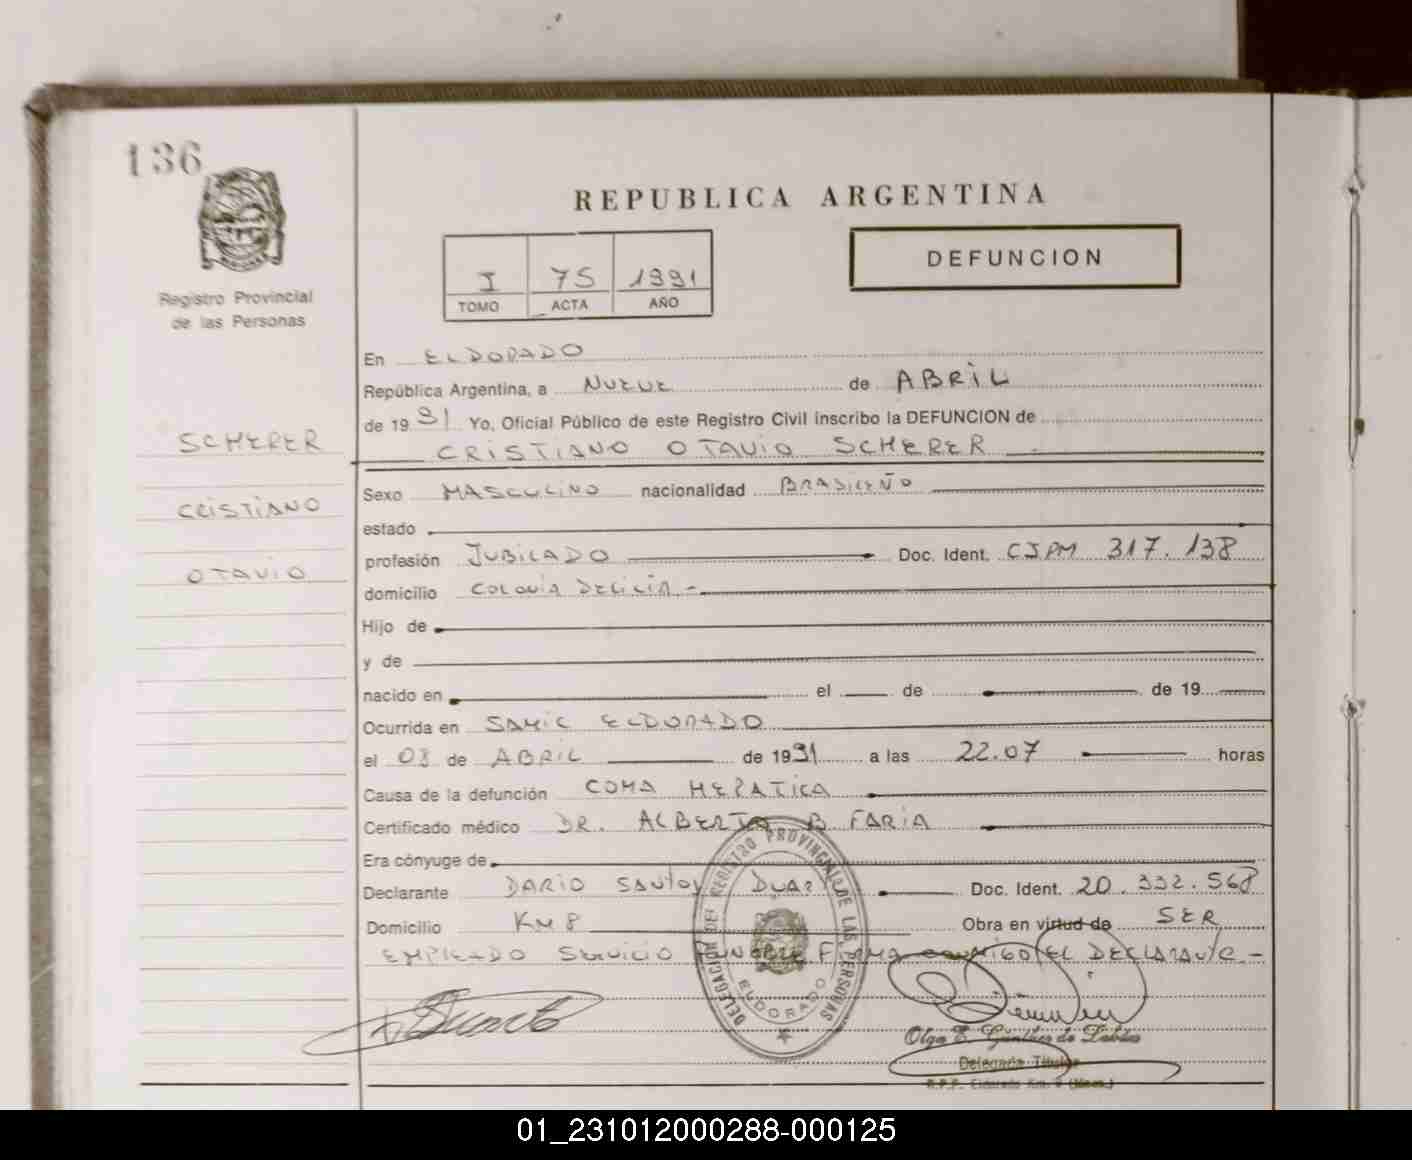 136
REPUBLICA ARGENTINA
I 75 1991
TOMO ACTA AÑO
DEFUNCION
Registro Provincial
de las Personas
SCHERER
CRISTIANO
OTAVIO
En ELDORADO
República Argentina, a NUEVE de ABRIL
de 1991 Yo, Oficial Público de este Registro Civil inscribo la DEFUNCION de
CRISTIANO OTAVIO SCHERER
Sexo MASCULINO nacionalidad BRASILEÑO
estado
profesión JUBILADO Doc. Ident. CIPM 317.138
domicilio COLONIA DELICIA -
Hijo de
y de
nacido en el de de 19
Ocurrida en SAMIC ELDORADO
el 08 de ABRIL de 1991 a las 22.07 horas
Causa de la defunción COMA HEPATICA
Certificado médico DR. ALBERTO B FARIA
Era cónyuge de
Declarante DARIO SANTOS DUARTE Doc. Ident. 20.332.568
Domicilio KM 8 Obra en virtud de SER
EMPLEADO SERVICIO FUNEBRE FIRMA CONMIGO EL DECLARANTE -
DELEGACION DEL REGISTRO PROVINCIAL DE LAS PERSONAS
ELDORADO
Olga E. Günther de
Delegada Titular
R.P.P. Eldorado Km. 9 (Mnes.)
01_231012000288-000125